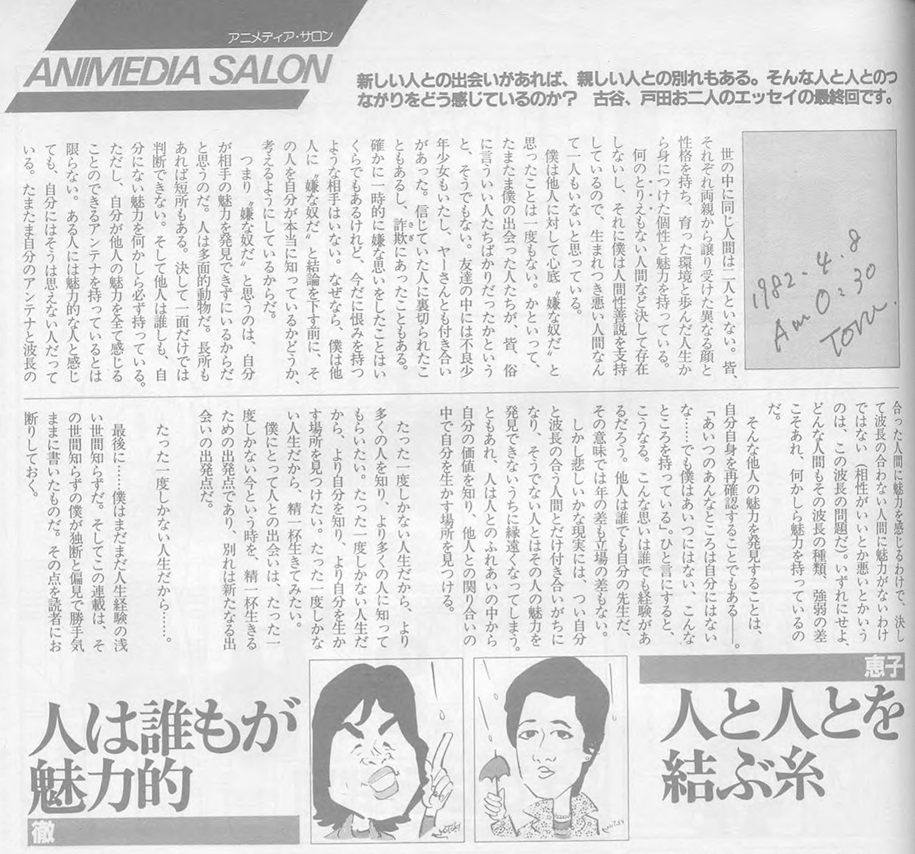 アニメディア・サロン
ANIMEDIA SALON
新しい人との出会いがあれば、親しい人との別れもある。そんな人と人とのつ
ながりをどう感じているのか?　古谷、戸田お二人のエッセイの最終回です。
1982.4.8
Am 0:30
Toru
世の中に同じ人間は二人といない。皆、
それぞれ両親から譲り受けた異なる顔と
性格を持ち、育った環境と歩んだ人生か
ら身につけた個性と魅力を持っている。
何のとりえもない人間など決して存在
しないし、それに僕は人間性善説を支持
しているので、生まれつき悪い人間なん
て一人もいないと思っている。
僕は他人に対して心底〝嫌な奴だ〟と
思ったことは一度もない。かといって、
たまたま僕の出会った人たちが、皆、俗
に言ういい人たちばかりだったかという
と、そうでもない。友達の中には不良少
年少女もいたし、ヤーさんとも付き合い
があった。信じていた人に裏切られたこ
ともあるし、詐欺にあったこともある。
確かに一時的に嫌な思いをしたことはい
くらでもあるけれど、今だに恨みを持つ
ような相手はいない。なぜなら、僕は他
人に〝嫌な奴だ〟と結論を下す前に、そ
の人を自分が本当に知っているかどうか、
考えるようにしているからだ。
つまり〝嫌な奴だ〟と思うのは、自分
が相手の魅力を発見できずにいるからだ
と思うのだ。人は多面的動物だ。長所も
あれば短所もある。決して一面だけでは
判断できない。そして他人は誰しも、自
分にない魅力を何かしら必ず持っている。
ただし、自分が他人の魅力を全て感じる
ことのできるアンテナを持っているとは
限らない。ある人には魅力的な人と感じ
ても、自分にはそうは思えない人だって
いる。たまたま自分のアンテナと波長の
合った人間に魅力を感じるわけで、決し
て波長の合わない人間に魅力がないわけ
ではない（相性がいいとか悪いとかいう
のは、この波長の問題だ）。いずれにせよ、
どんな人間もその波長の種類、強弱の差
こそあれ、何かしら魅力を持っているの
だ。
そんな他人の魅力を発見することは、
自分自身を再確認することでもある――。
「あいつのあんなところは自分にはない
な……でも僕はあいつにはない、こんな
ところを持っている。」ひと言にすると、
こうなる。こんな思いは誰でも経験があ
るだろう。他人は誰でも自分の先生だ、
その意味では年の差も立場の差もない。
しかし悲しいかな現実には、つい自分
と波長の合う人間とだけ付き合いがちに
なり、そうでない人とはその人の魅力を
発見できないうちに縁遠くなってしまう。
ともあれ、人は人とのふれあいの中から
自分の価値を知り、他人との関り合いの
中で自分を生かす場所を見つける。
たった一度しかない人生だから、より
多くの人を知り、より多くの人に知って
もらいたい。たった一度しかない人生だ
から、より自分を知り、より自分を生か
す場所を見つけたい。たった一度しかな
い人生だから、精一杯生きてみたい。
僕にとって人との出会いは、たった一
度しかない今という時を、精一杯生きる
ための出発点であり、別れは新たなる出
会いの出発点だ。
たった一度しかない人生だから……。
最後に……僕はまだまだ人生経験の浅
い世間知らずだ。そしてこの連載は、そ
の世間知らずの僕が独断と偏見で勝手気
ままに書いたものだ。その点を読者にお
断りしておく。
恵子
人と人とを
結ぶ糸
人は誰もが
魅力的
徹